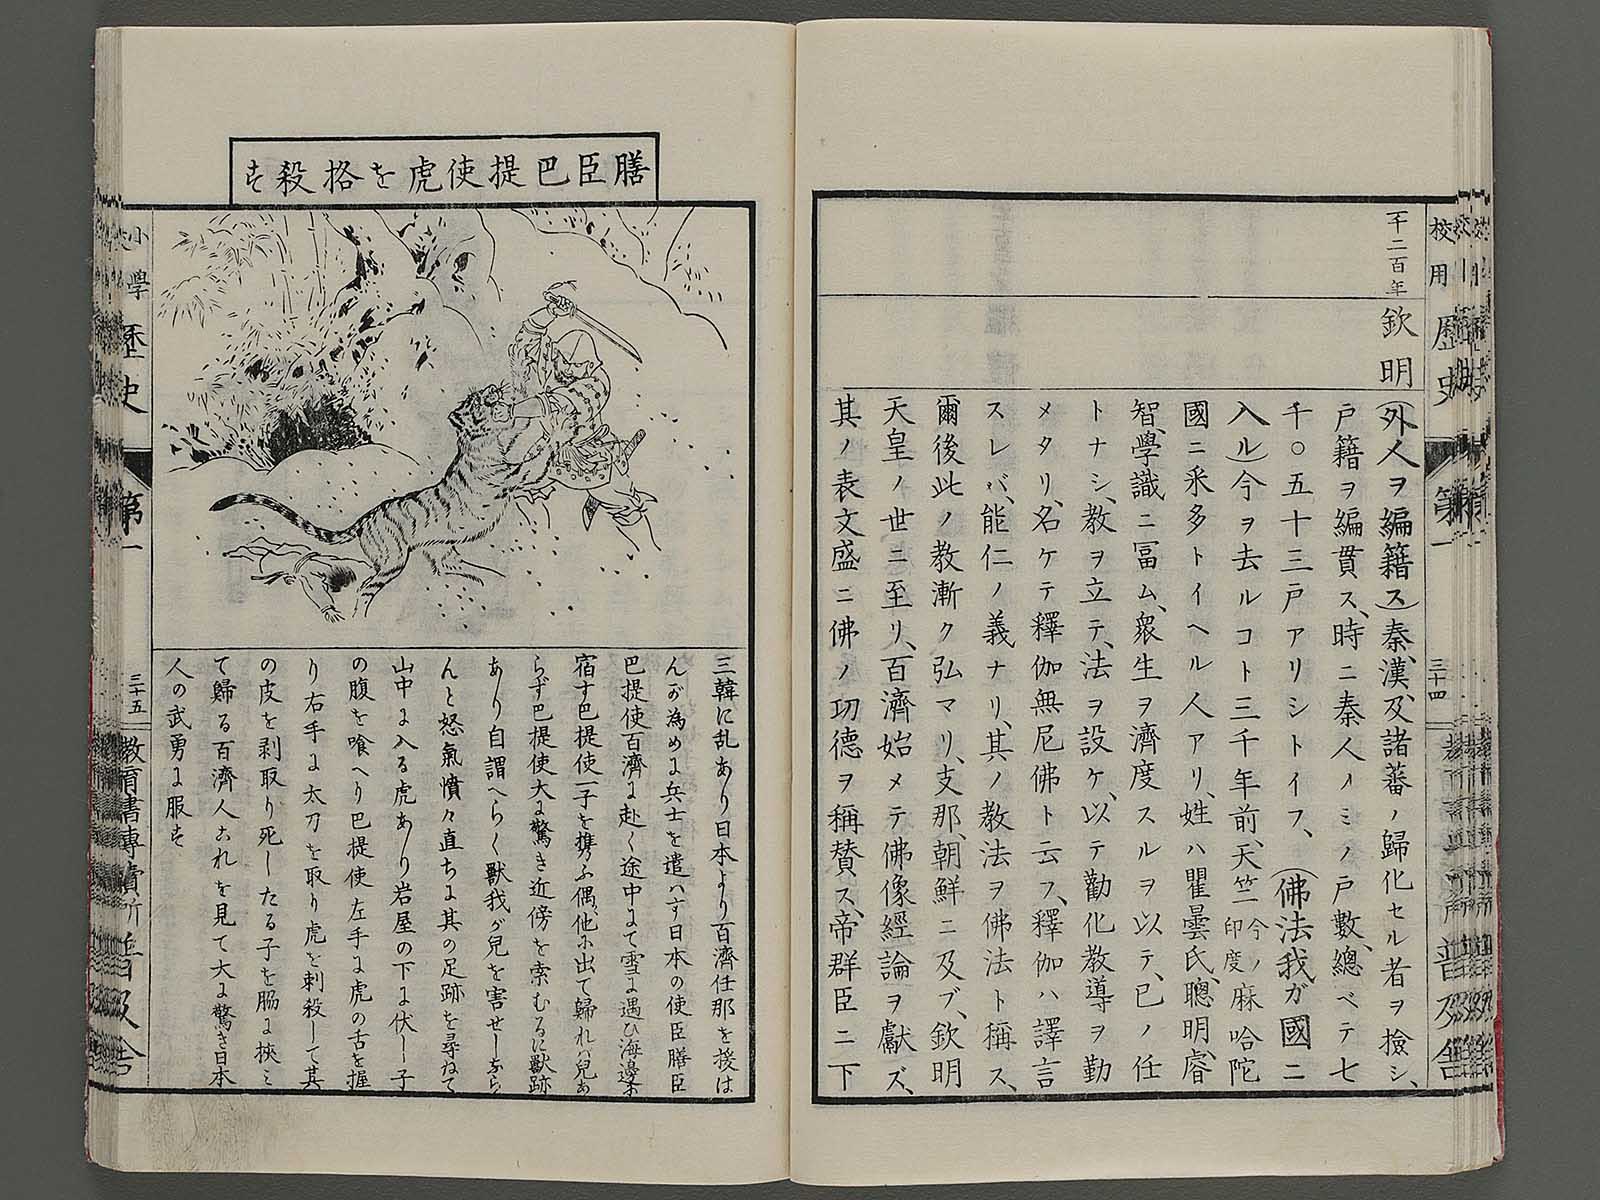 千二百年
欽明
(外人ヲ編籍ス)秦、漢、及諸蕃ノ歸化セル者ヲ撿シ、
戸籍ヲ編貫ス、時ニ秦人ノミノ戸數、總ベテ七
千〇五十三戸アリシトイフ、(佛法我ガ國ニ
入ル)今ヲ去ルコト三千年前、天竺今ノ印度麻哈陀
國ニ釆多トイヘル人アリ、姓ハ瞿曇氏、聰明、睿
智、學識ニ冨ム、衆生ヲ濟度スルヲ以テ、已ノ任
トナシ、教ヲ立テ、法ヲ設ケ、以テ勸化教導ヲ勤
メタリ、名ケテ釋伽無尼佛ト云フ、釋伽ハ譯言
スレバ、能仁ノ義ナリ、其ノ教法ヲ佛法ト稱ス、
爾後此ノ教漸ク弘マリ、支那、朝鮮ニ及ブ、欽明
天皇ノ世ニ至リ、百濟始メテ佛像經論ヲ獻ズ、
其ノ表文盛ニ佛ノ功德ヲ稱賛ス、帝群臣ニ下
校用歴史
第一
三十四
普及舎
膳臣巴提使虎を挌殺す
三韓に乱あり日本より百濟任那を援は
んが為めに兵士を遣ハす日本の使臣膳臣
巴提使百濟に赴く途中にて雪に遇ひ海邊に
宿す巴提使一子を携ふ偶他に出て歸れハ兒あ
らず巴提使大に驚き近傍を索むるに獸跡
あり自謂へらく獸我が兒を害せしならん
んと怒氣憤々直ちに其の足跡を尋ねて
山中に入る虎あり岩屋の下に伏し子
の腹を喰へり巴提使左手に虎の舌を握
り右手に太刀を取り虎を刺殺して其
の皮を剥取り死したる子を脇に挾み
て歸る百濟人これを見て大に驚き日本
人の武勇に服す
小學歴史
第一
三十五
教育書專賣所普及舎